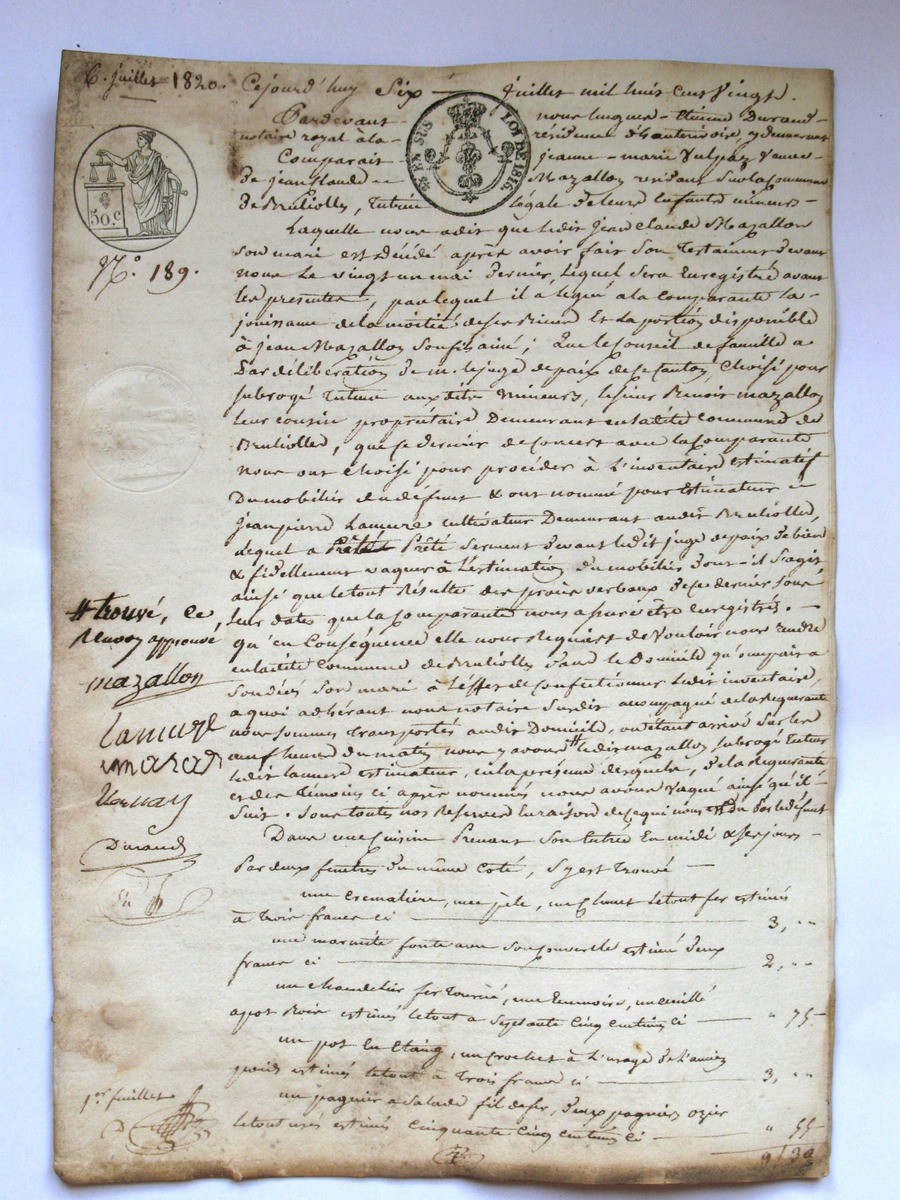 6. juillet 1820.
Cejourd'huy Six juillet mil huit cent vingt.
Pardevant nous Etienne Durand
notaire royal à la résidence
Comparait jeanne-marie Vulpas veuve
De jean Claude Mazallon résidant sur la Commune
De Brullolles, tutrice légale de leurs Enfants mineurs
EN SUS
LOI DE 1816.
50.c
N.o 189.
Laquelle nous a dit que ledit Jean Claude Mazallon
son mari est décédé après avoir fait son Testament devant
nous le vingt un mai dernier, lequel sera Enregistré avant
les présentes, par lequel il a légué à la comparante la
jouissance de la moitié de ses Biens Et la portion disponible
à jean Mazallon son fils ainé; que le Conseil de famille a
Par délibération de m. le juge de paix de ce Canton, choisi pour
subrogé tuteur aux dits mineurs, le sieur Benoit mazallon
leur cousin propriétaire Demeurant en la dite commune de
Brullolles, que ce dernier de concert avec la Comparante
nous ont choisi pour procéder à l'inventaire estimatif
Du mobilier du défunt & ont nommé pour Estimateur
jean pierre Lamure cultivateur Demeurant audit Brullolles,
lequel a Prêté serment devant ledit juge de paix de bien
& fidellement vaquer à l'estimation du mobilier dont il s'agit
ainsi que le tout Résulte des procès verbaux de ce dernier sous
leurs dates que la Comparante nous assure être Enregistrés.
qu'en Conséquence elle nous Requiert de vouloir nous rendre
en la dite Commune de Brullolles dans le Domicile qu'occupait
son dit mari à l'effet de confectionner ledit inventaire,
a quoi adhérant nous notaire susdit accompagné de la Requérante
nous sommes transportés audit Domicile, où étant arrivé sur les
neuf heures du matin nous y avons # ledit mazallon subrogé tuteur
ledit lamure estimateur, en la présence desquels, de la Requérante
et des témoins ci après nommés nous avons vaqué ainsi qu'il
suit. Sous toutes nos Réserves En raison de ce qui nous est Du par le défunt
# trouvé, ce
Renvoy approuvé
mazallon
Lamure
Durand
Dans une Cuisine Prenant son Entrée En midi & ses jours
Par deux fenêtres du même Coté, s'y est Trouvé
une cremalière, une pèle, un Chenet le tout fer estimés
à trois francs ci 3, "
une marmite fonte avec son couvercle estimé deux
francs ci 2, "
un chandelier fer tourné,
estimés le tout a septante Cinq centimes ci " 75
un pot En Etaing, un crochet à l'usage de l'ancien
poids estimés le tout à Trois francs ci 3, "
un pagnier à salade fil de fer, deux pagniers ozier
le tout usés estimés Cinquante Cinq centimes ci " 55
1er feuillet
9/30